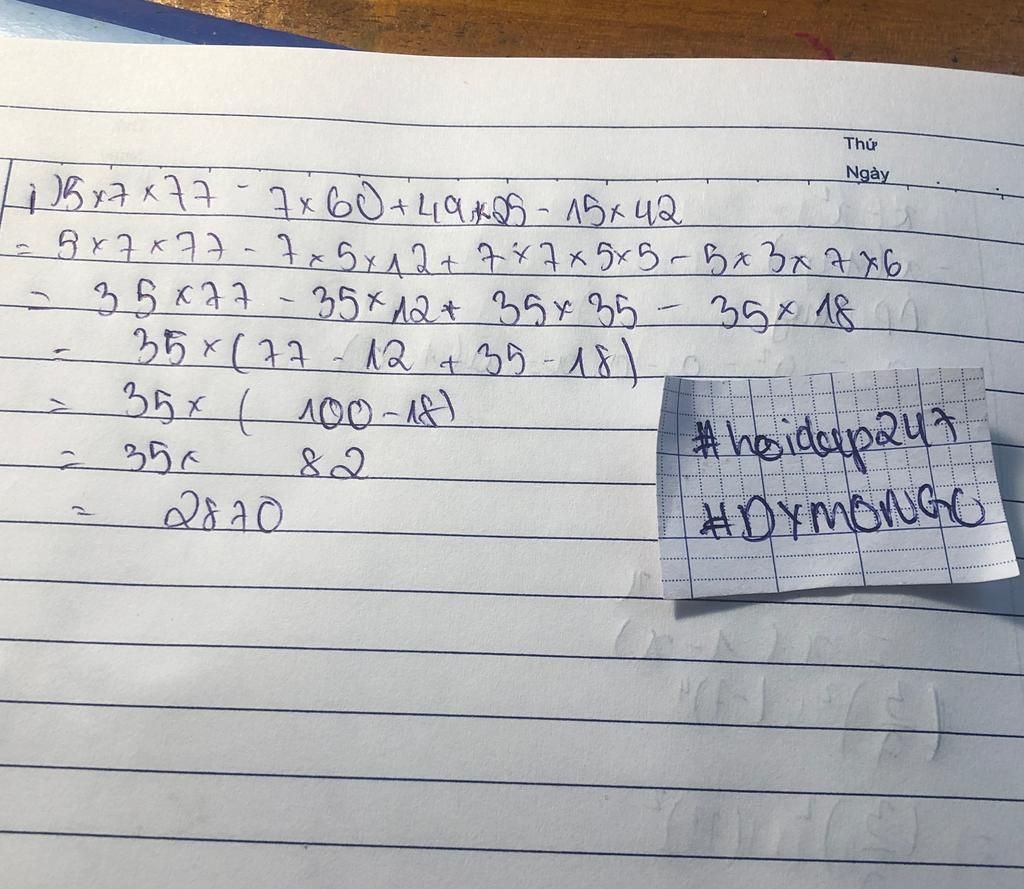 Thứ
Ngày
i) 5×7×77 - 7×60 + 49×25 - 15×42
= 5×7×77 - 7×5×12 + 7×7×5×5 - 5×3×7×6
= 35×77 - 35×12 + 35×35 - 35×18
= 35×(77 - 12 + 35 - 18)
= 35×( 100 - 18)
= 35× 82
= 2870
#hoidap247
#DYMONGO